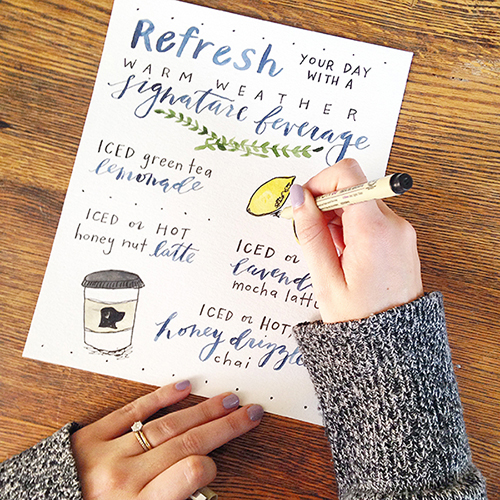 Refresh YOUR DAY
WITH A
WARM WEATHER
signature beverage
ICED green tea
lemonade
ICED or HOT
honey nut latte
ICED or
mocha
ICED or HOT
honey drizzle
chai